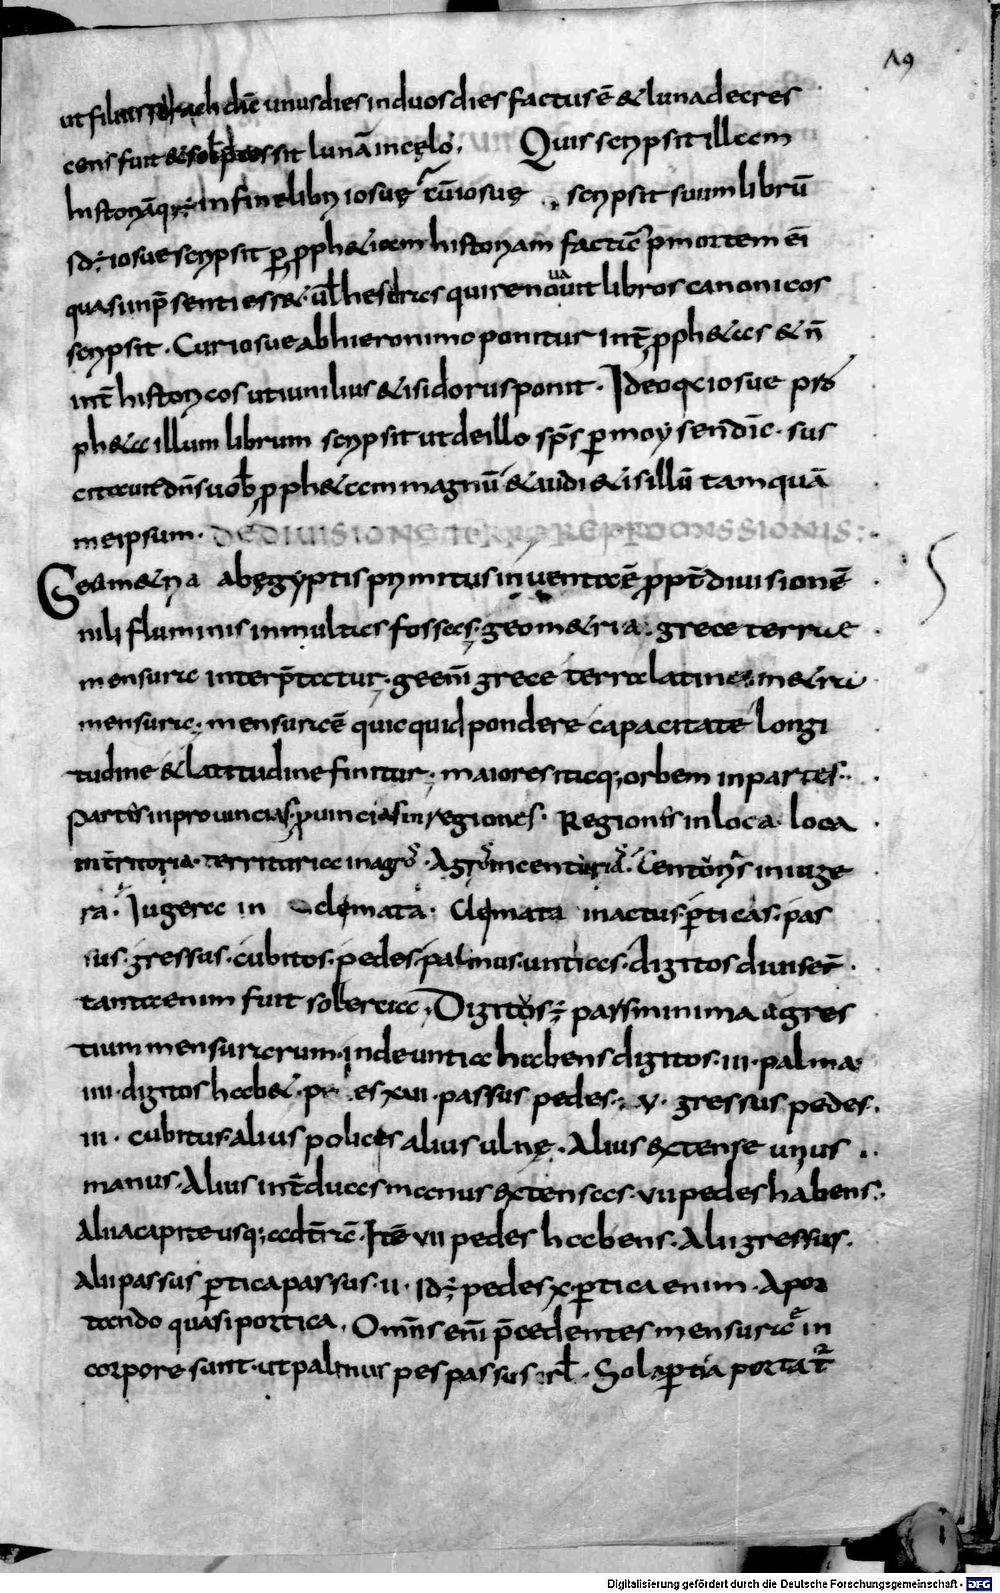 19
ut filius sirach dic̄ unus dies in duos dies factus ē & luna decres
cens fuit & sol p̄cessit lunā in cęlo. Quis scripsit illam
historiā q̄r; in fine libri iosuę cū iosuę scripsit suum librū
sđ; iosue scripsit ꝑ proph&iam historiam factā p̄ mortem ei
quasi in p̄senti ess&. ul hesdras qui renouauit libros canonicos
scripsit. Cur iosue ab hieronimo ponitur int̄ proph&as & n̄
int̄ historicos ut iunilius & isidorus ponit. Ideoq; iosue pro
ph&a illum librum scripsit ut de illo sp̄s ꝑ moysen dic̄. sus
citauit dn̄s uob proph&am magnū & audi&is illū tamquā
meipsum. DE DIVISIONE TERRE REPROMISSIONIS:
Geom&ria ab ęgyptis primitus inuenta ē propt̄ diuisionē
nili fluminis in multas fossas. geom&ria. grece terrae
mensura interp̄tatur. ge enī grece terra latine m&ra
mensura. mensura ē quicquid pondere capacitate longi
tudine & latitudine finitur. maiores itaq; orbem in partes.
partes in prouincias. prouincias in regiones. Regiones in loca. loca
in t̄ritoria. territoria in agros. Agros in centurias. Centurias in iuge
ra. Iugera in clemata. Clemata in actus. ꝑticas. pas
sus. gressus. cubitos. pedes. palmus. untias. digitos diuiser̄.
tanta enim fuit solertia. Digitus; pars minima agres
tium mensurarum. inde untia habens digitos. iii. palma
iiii. digitos hab&. pes xvi. passus pedes. v. gressus pedes.
iii. cubitus. alius polices alius ulnę. Alius extense unus
manus. Alius int̄ duas manus extensas. vii pedes habens.
alii a capite usq; ad t̄rā. Itē vii pedes habens. Alii gressus.
alii passus ꝑtica passus. ii. id; pedes x. ꝑtica enim. A por
tando quasi portica. Omn̄s enī p̄cedentes mensurae in
corpore sunt. ut palmus pes passus & rl. Sola ꝑtica portat̄
Digitalisierung gefördert durch die Deutsche Forschungsgemeinschaft - DFG